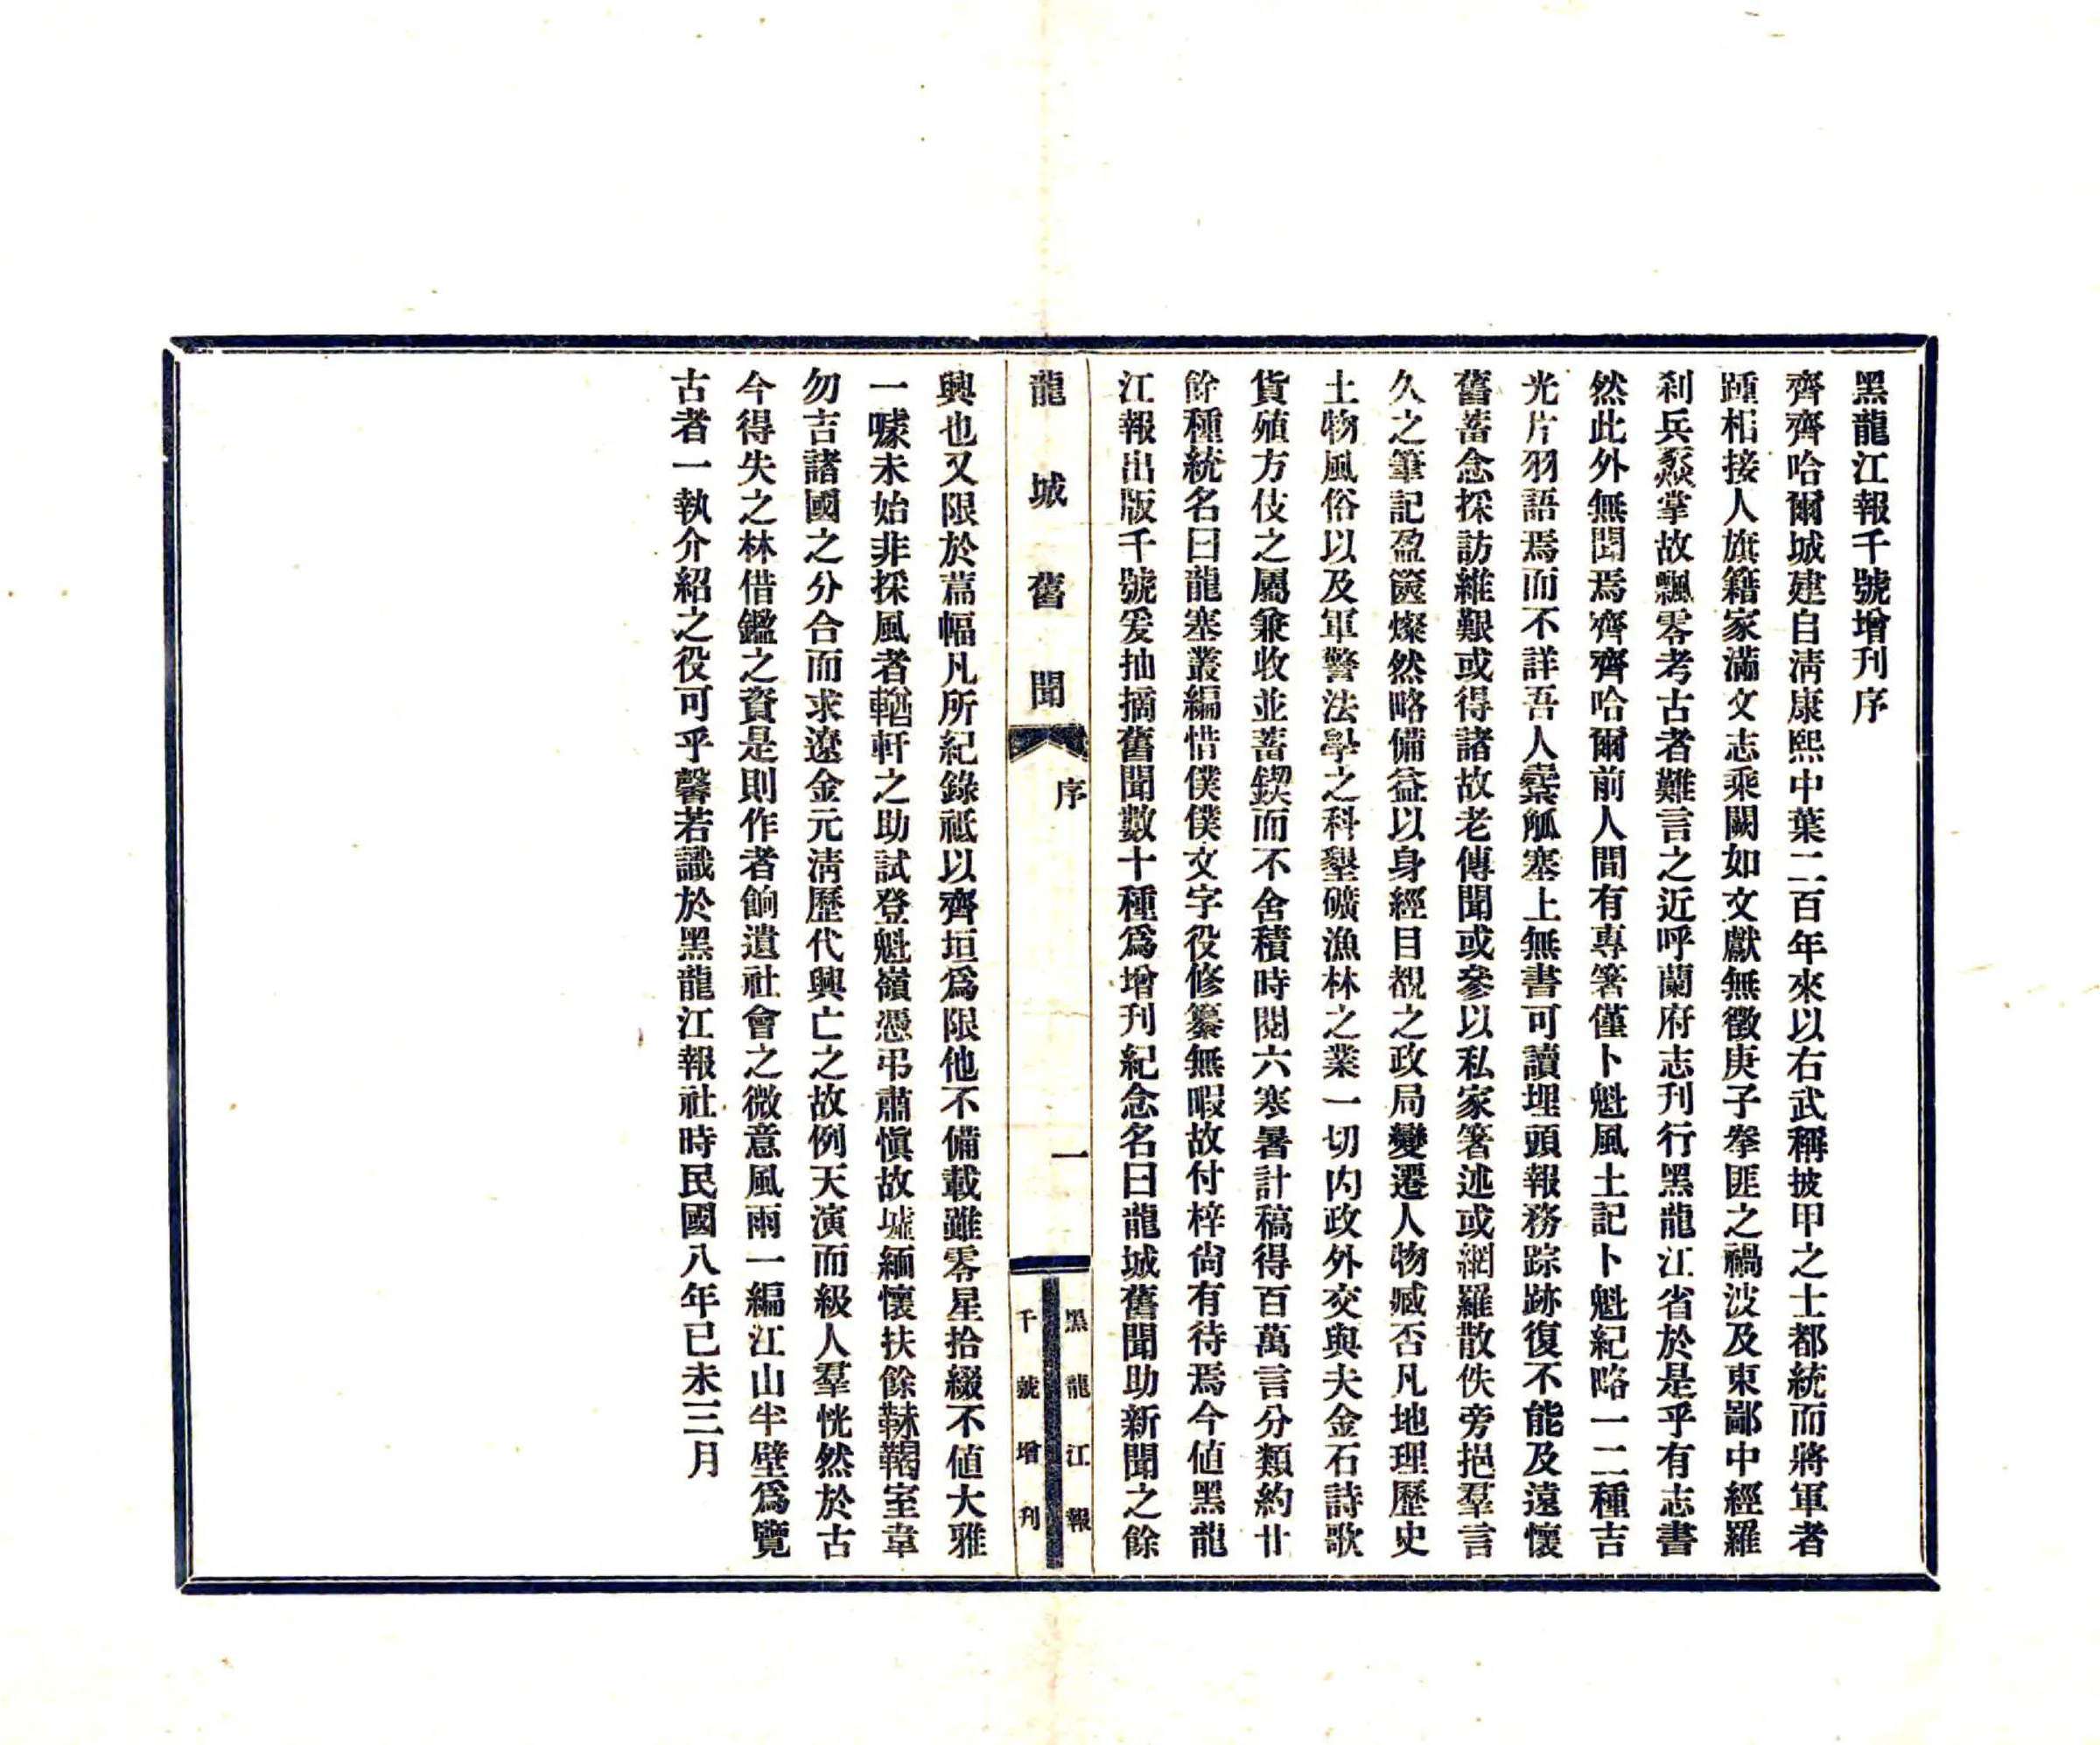 黑龍江報千號增刊序
齊齊哈爾城建自清康熙中葉二百年來以右武稱披甲之士都統而將軍者
踵相接人旗籍家滿文志乘闕如文獻無徵庚子拳匪之禍波及東鄙中經羅
刹兵燹掌故飄零考古者難言之近呼蘭府志刊行黑龍江省於是乎有志書
然此外無聞焉齊齊哈爾前人間有專箸僅卜魁風土記卜魁紀略一二種吉
光片羽語焉而不詳吾人橐觚塞上無書可讀埋頭報務踪跡復不能及遠懷
舊蓄念採訪維艱或得諸故老傳聞或參以私家箸述或網羅散佚旁挹羣言
久之筆記盈篋燦然略備益以身經目覩之政局變遷人物臧否凡地理歷史
土物風俗以及軍警法學之科墾礦漁林之業一切內政外交與夫金石詩歌
貨殖方伎之屬兼收並蓄鍥而不舍積時閱六寒暑計稿得百萬言分類約廿
餘種統名曰龍塞叢編惜僕僕文字役修纂無暇故付梓尙有待焉今値黑龍
江報出版千號爰抽摘舊聞數十種爲增刊紀念名曰龍城舊聞助新聞之餘
龍城舊聞
序
一
黑龍江報
千號增刊
興也又限於篇幅凡所紀錄祗以齊垣爲限他不備載雖零星拾綴不値大雅
一噱未始非採風者輶軒之助試登魁嶺憑弔肅愼故墟緬懷扶餘靺鞨室韋
勿吉諸國之分合而求遼金元清歷代興亡之故例天演而級人羣恍然於古
今得失之林借鑑之資是則作者餉遺社會之微意風雨一編江山半壁爲覽
古者一執介紹之役可乎馨若識於黑龍江報社時民國八年已未三月